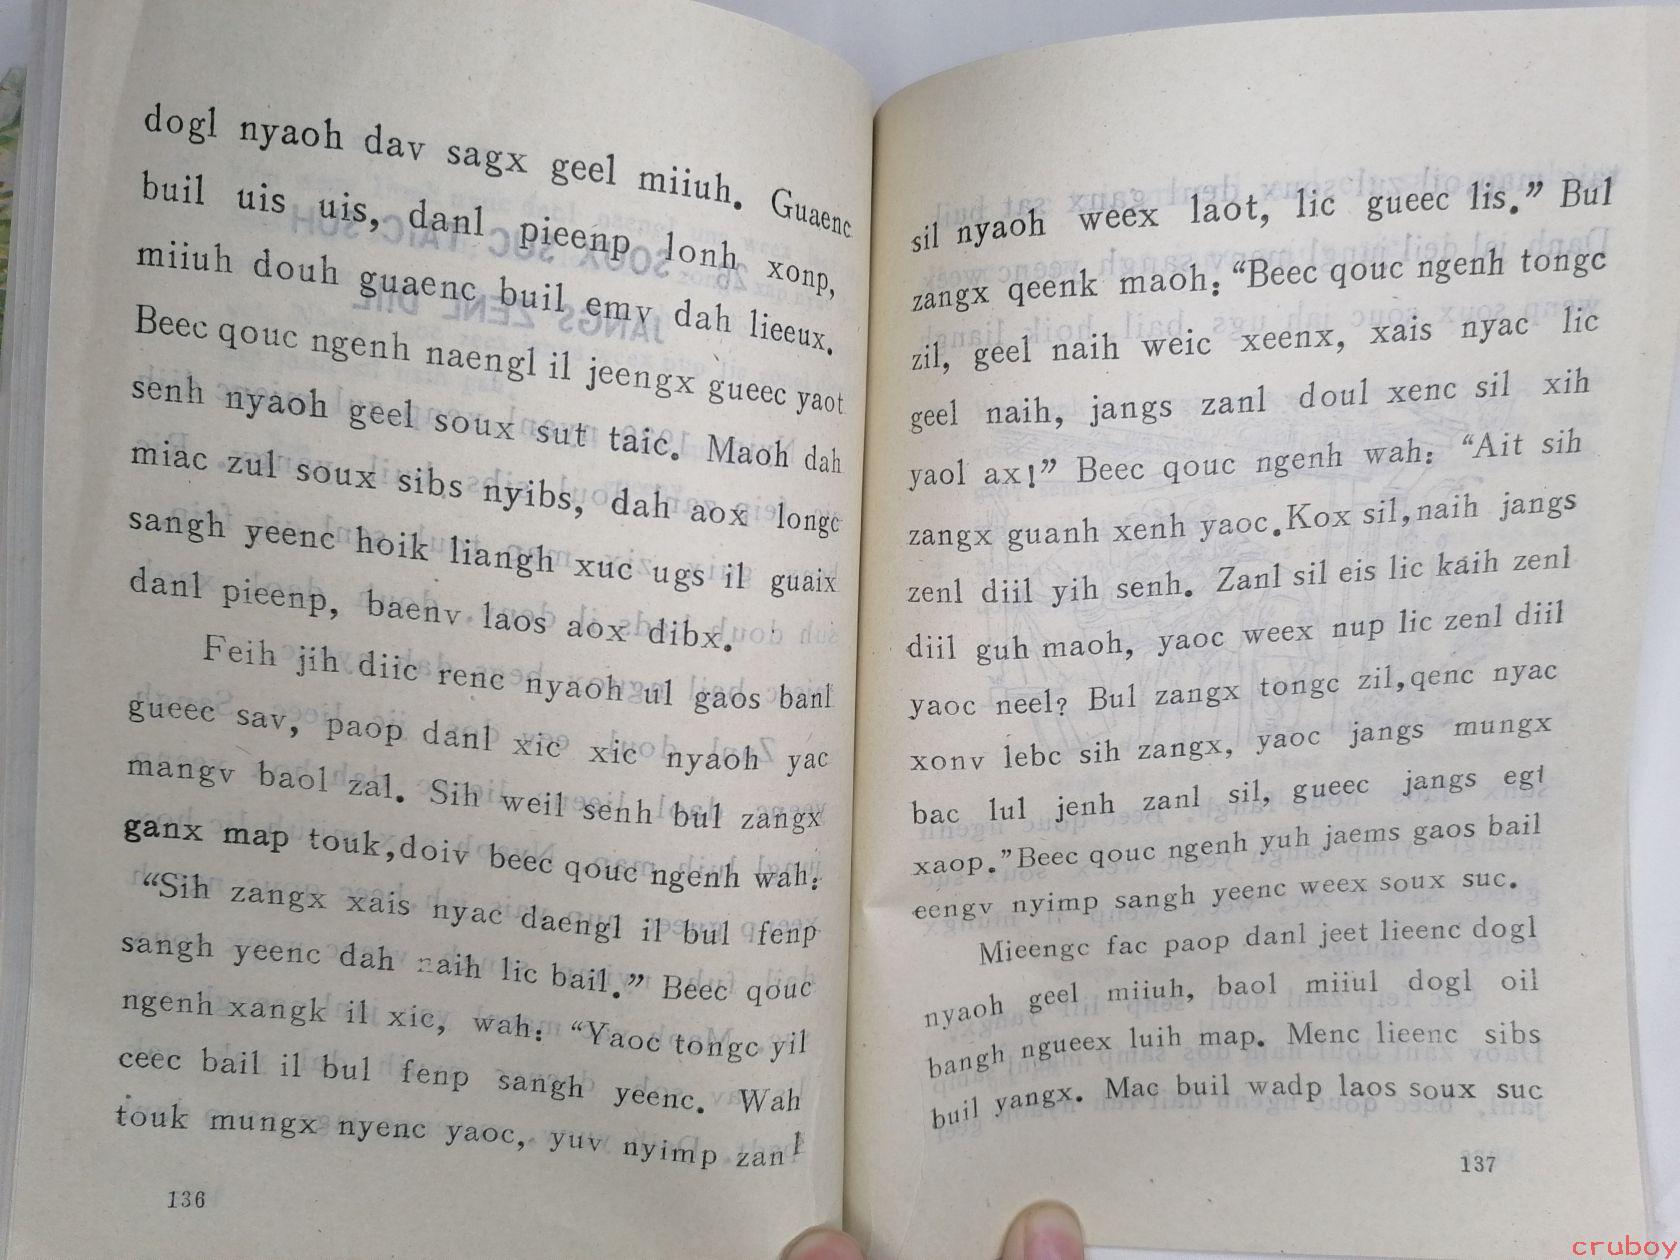 dogl nyaoh dav sagx geel miiuh. Guaenc
buil uis uis, danl pieenp lonh xonp,
miiuh douh guaenc buil emv dah lieeux.
Beec qouc ngenh naengl il jeengx gueec yaot
senh nyaoh geel soux sut taic. Maoh dah
miac zul soux sibs nyibs, dah aox longc
sangh yeenc hoik liangh xuc ugs il guaix
danl pieenp, baenv laos aox dibx.
Feih jih diic renc nyaoh ul gaos banl
gueec sav, paop danl xic xic nyaoh yac
mangv baol zal. Sih weil senh bul zangx
ganx map touk, doiv beec qouc ngenh wah:
“Sih zangx xais nyac daengl il bul fenp
sangh yeenc dah naih lic bail.” Beec qouc
ngenh xangk il xic, wah: “Yaoc tongc yil
ceec bail il bul fenp sangh yeenc. Wah
touk mungx nyenc yaoc, yuv nyimp zanl
136
sil nyaoh weex laot, lic gueec lis.” Bul
zangx qeenk maoh: “Beec qouc ngenh tongc
zil, geel naih weic xeenx, xais nyac lic
geel naih, jangs zanl doul xenc sil xih
yaol ax!” Beec qouc ngenh wah: “Ait sih
zangx guanh xenh yaoc. Kox sil, naih jangs
zenl diil yih senh. Zanl sil eis lic kaih zenl
diil guh maoh, yaoc weex nup lic zenl diil
yaoc neel? Bul zangx tongc zil, qenc nyac
xonv lebc sih zangx, yaoc jangs mungx
bac lul jenh zanl sil, gueec jangs egt
xaop.” Beec qouc ngenh yuh jaems gaos bail
eengv nyimp sangh yeenc weex soux suc.
Mieengc fac paop danl jeet lieenc dogl
nyaoh geel miiuh, baol miiul dogl oil
bangh ngueex luih map. Menc lieenc sibs
buil yangx. Mac buil wadp laos soux suc
137
cruboy